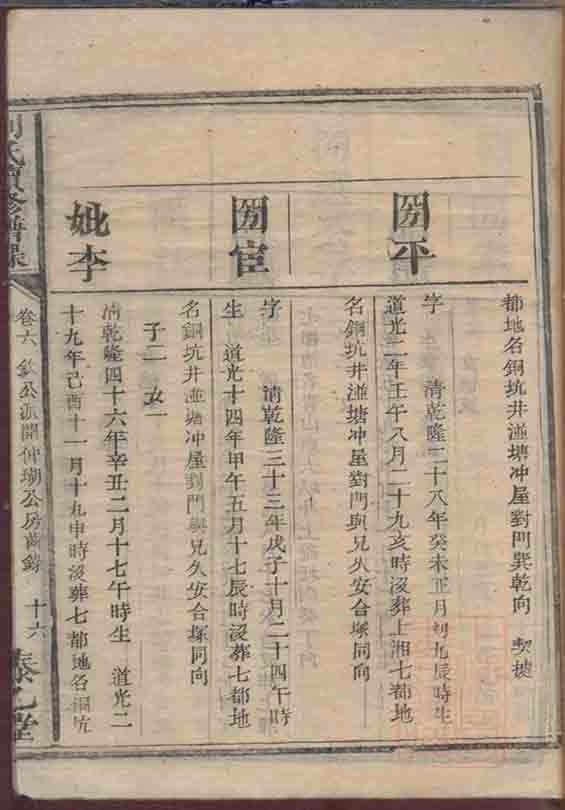 都地名銅坑井塰塘冲屋對門巽乾向 契據
平
字 清乾隆二十八年癸未正月初九辰時生
道光二年壬午八月二十九亥時沒葬上湘七都地
名銅坑井塰塘冲屋對門與兄久安合塚同向
宦
字 清乾隆三十三年戊子十月二十四午時
生 道光十四年甲午五月十七辰時沒葬七都地
名銅坑井塰塘冲屋對門與兄久安合塚同向
子二 女一
妣李
清乾隆四十六年辛丑二月十七午時生 道光二
十九年己酉十一月十九申時沒葬七都地名銅坑
劉氏續修譜
卷六 欽公派開仲瑚公房齒錄 十六
泰乙堂